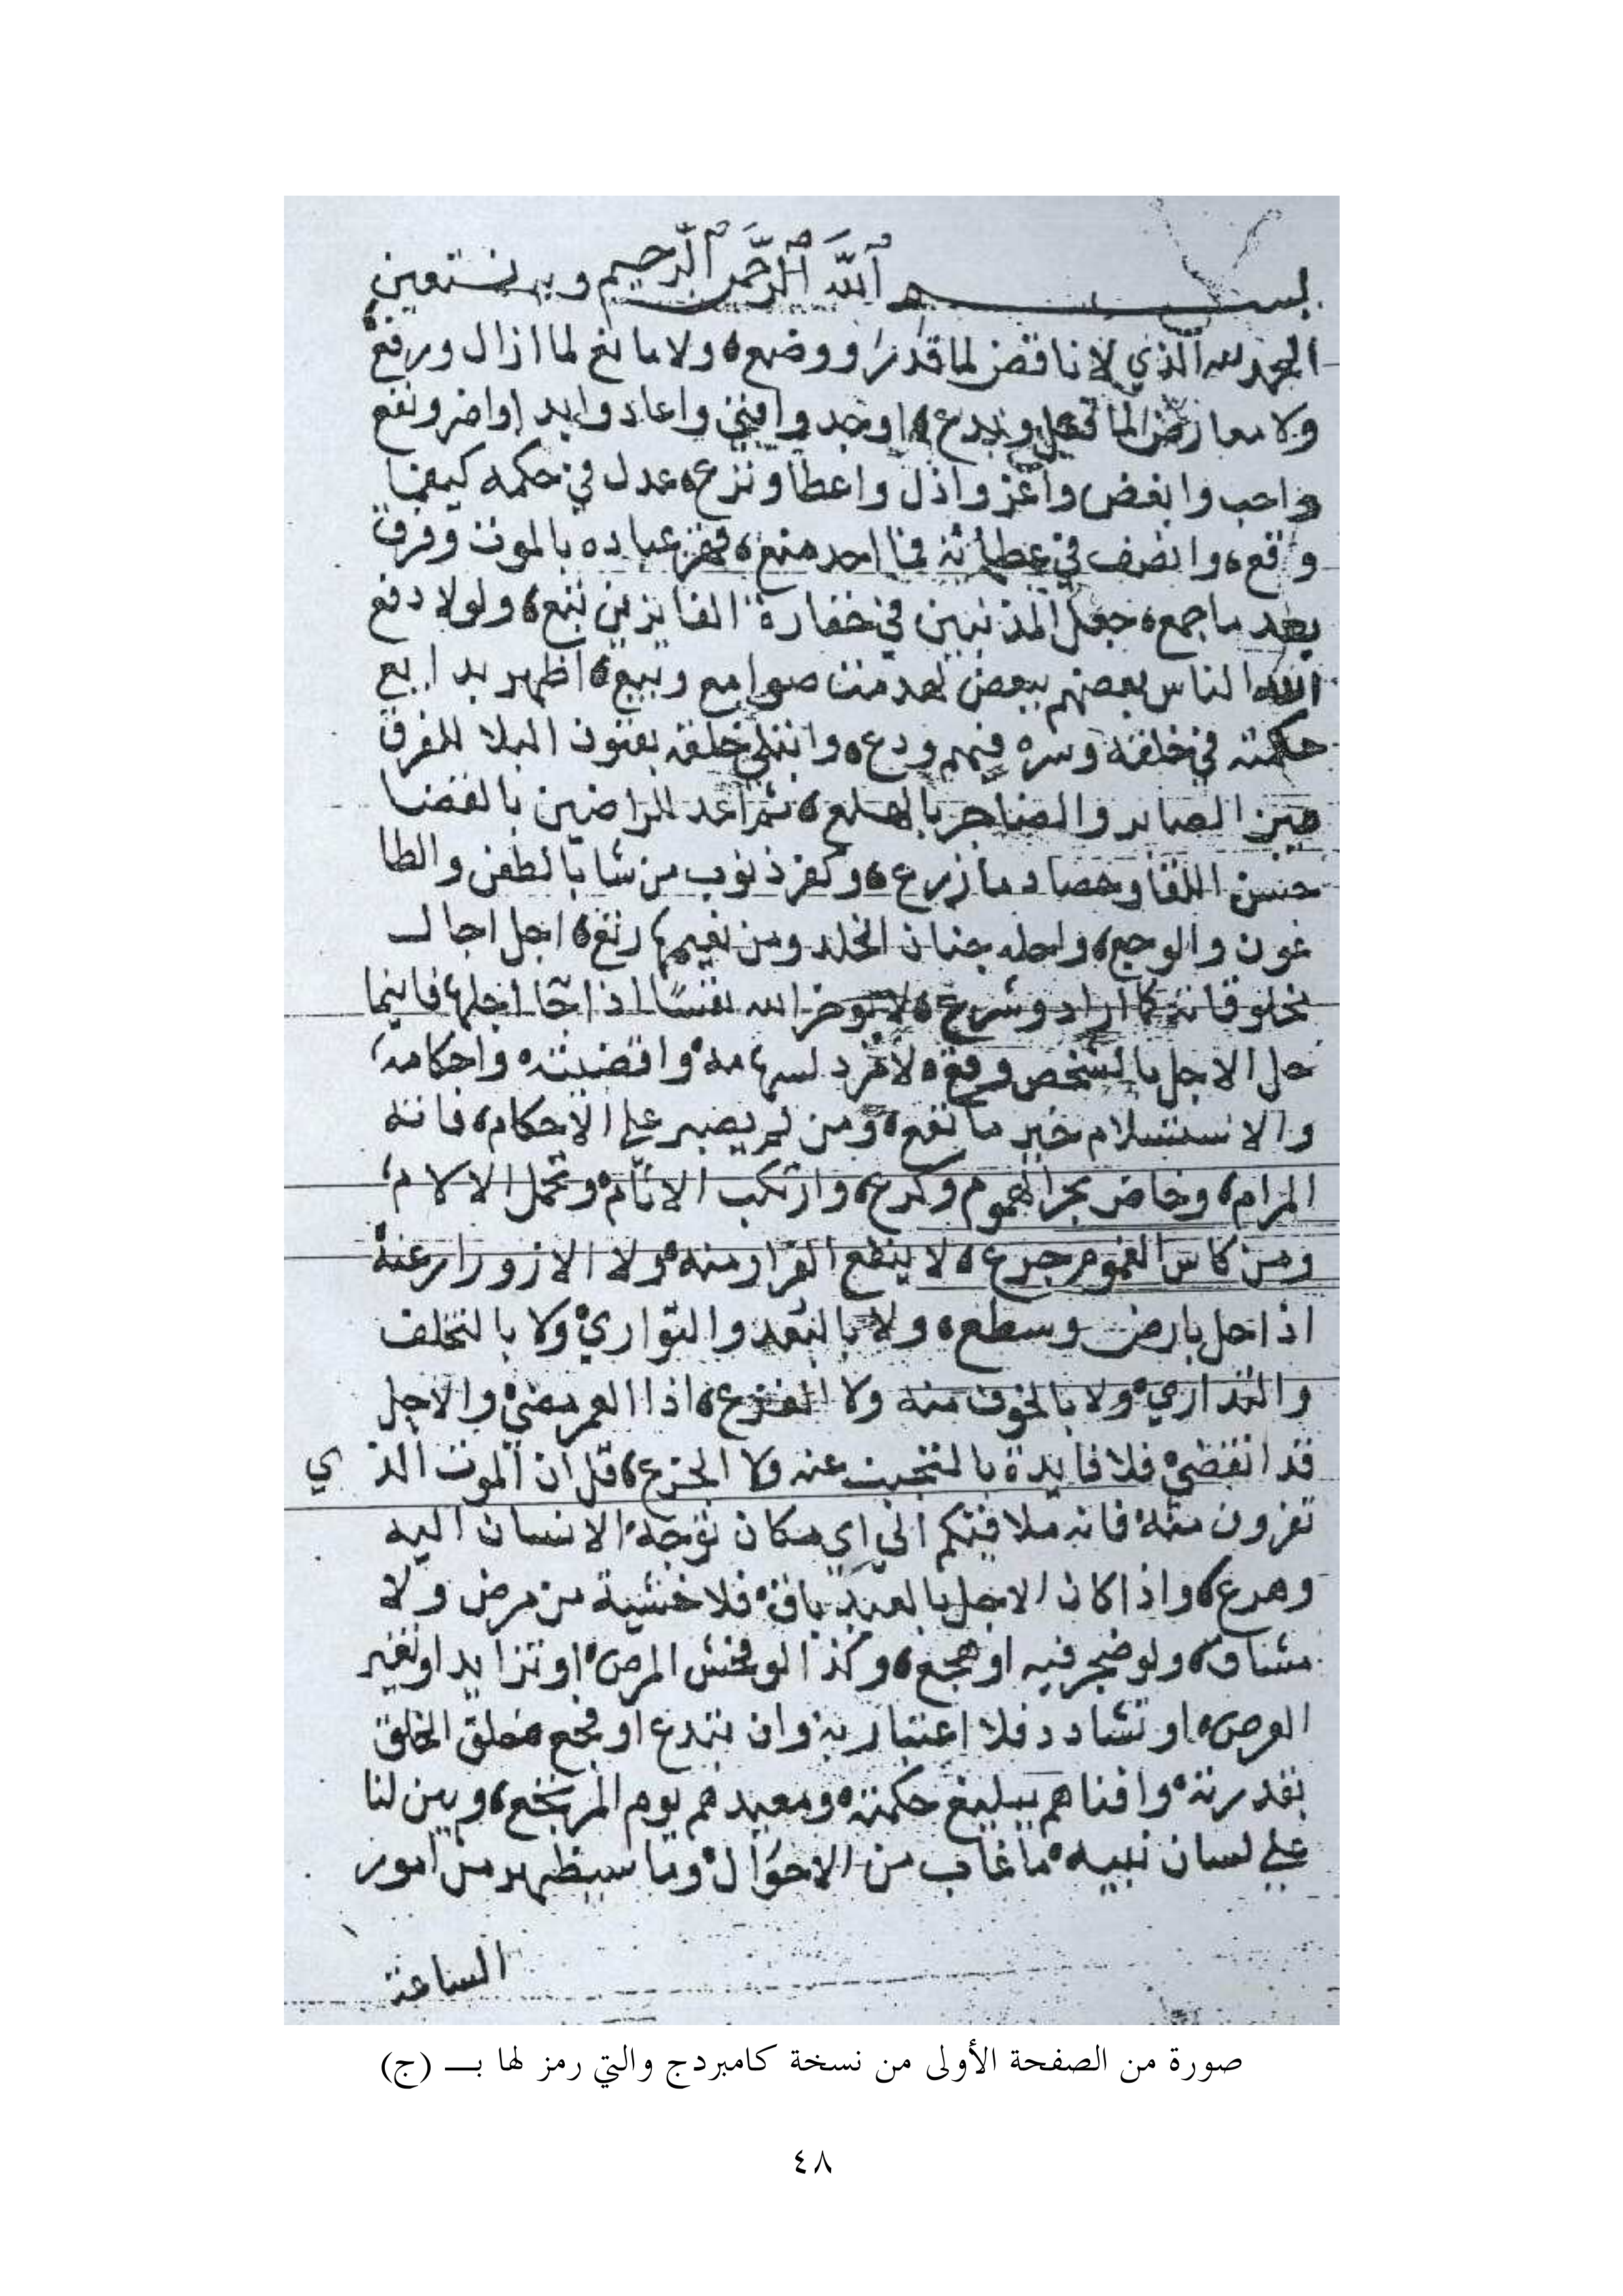 بسم الله الرحمن الرحيم وبه نستعين
الحمد لله الذي لا ناقض لما قدر ووضع ولا مانع لما ازال ورفع
ولا معارض لما فعل وابدع اوجد وافنى واعاد وابد اواضر ونفع
واحب وابغض واعز واذل واعطا ونزع عدل في حكمه كيفما
وقع وانصف في عطائه فما احد منع قهر عباده بالموت وفرق
بعد ما جمع جعل المذنبين في خفارة الفايزين تبع ولولا دفع
الله الناس بعضهم ببعض لهدمت صوامع وبيع اظهر بدايع
حكمته في خلقه وسره فيهم ودع وابتلى خلقه بفنون البلا للفرق
بين الصابر والضاجر بالهلع ثم اعد للراضين بالقضا
حسن اللقا وحصاد ما زرع وكفر ذنوب من شا بالطعن والطا
عون والوجع واحله جنان الخلد ومن نعيمها رتع اجل اجال
مخلوقاته كما اراد وشرع لا يوخر الله نفسًا اذا جا اجلها فاينما
حل الاجل بالشخص وقع لا مرد لسهامه واقضيته واحكامه
والاستسلام خير ما نفع ومن لم يصبر على الاحكام فاته
المرام وخاض بحر الهموم وكرع وارتكب الاثام وتحمل الالام
ومن كاس الغموم جرع لا ينفع الفرار منه ولا الازورار عنه
اذا حل بارض وسطع ولا بالبعد والتواري ولا بالتخلف
والتداري ولا بالخوف منه ولا الفزع اذا العمر مضى والاجل
قد انقضى فلا فايدة بالتجنب عنه ولا الجزع قل ان الموت الذي
تفرون منه فانه ملاقيكم الى اي مكان توجه الانسان اليه
وهرع واذا كان الاجل بالعبد باق فلا خشية من مرض ولا
مشاق ولو ضجر فيه او هجع وكذا لو فحش المرض او تزايد او تغير
العرض او تشادد فلا اعتبار به وان بتدع او فجع خلق الخلق
بقدرته وافناهم ببليغ حكمته ومعيدهم يوم المرتجع وبين لنا
على لسان نبيه ما غاب من الاحوال وما سيظهر من امور
الساعة
صورة من الصفحة الأولى من نسخة كامبردج والتي رمز لها بـــ (ج)
٤٨